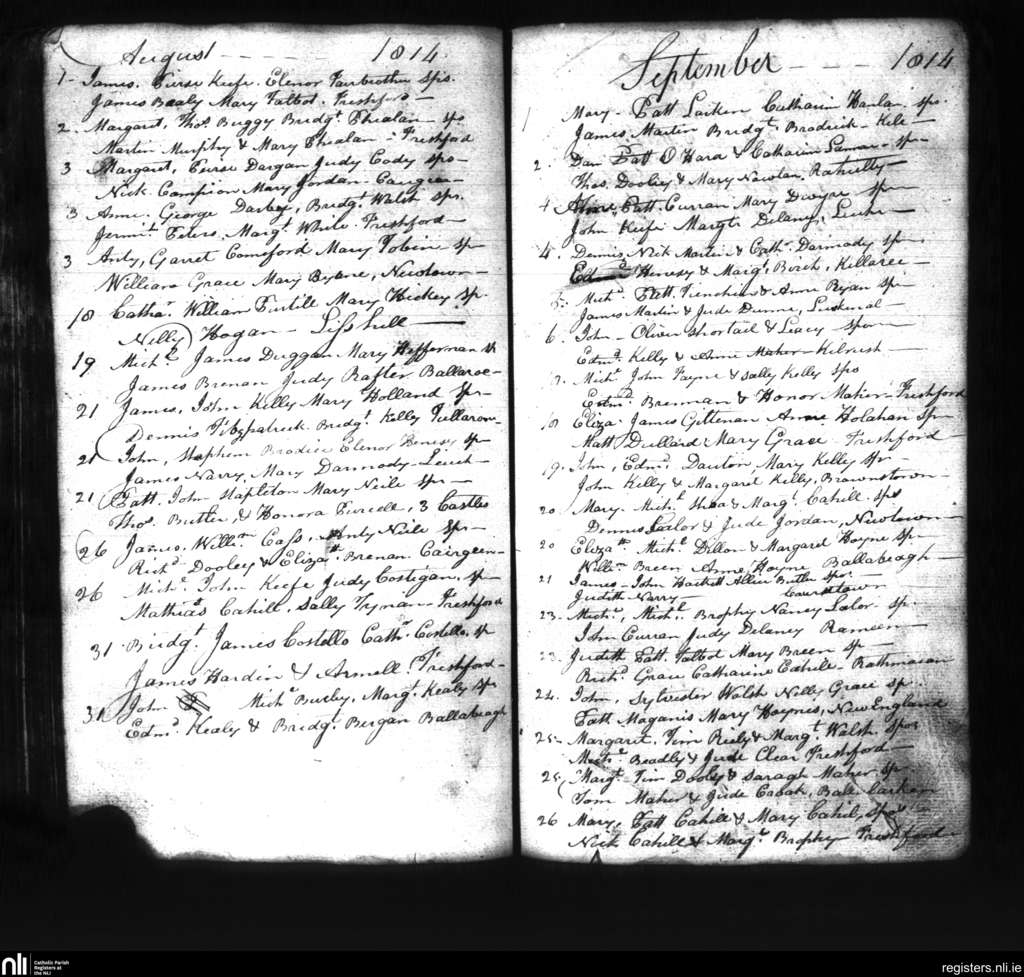 August 1814.
1- James. Purse Keefe. Elenor Fairbrother sps.
James Bealy Mary Talbot. Freshford —
2- Margaret, Thos. Buggy Bridgt. Phealan — sps
Martin Murphy & Mary Phealan. Freshford
3 Margaret, Purse Dargan Judy Cody spo—
Nick. Campion Mary Jordan — 
3 Anne. George Darbey, Bridgt. Walsh sps.
Jermh. Peters, Margt. White. Freshford —
3 Andy, Garret Comeford Mary Tobin sp—
William Grace Mary Byrne, Newtown —
18 Catha. William Purtill Mary Hickey sp.
Nelly Hogan — Lisshill —
19 Michl. James Duggan Mary Hefferman
James Brenan Judy Rafter Ballaroe —
21 James, John Kelly Mary Holland sp—
Dennis Fitzpatrick Bridgt. Kelly
21 John, Stephen Brodrice Elenor Henesy sp—
James Narry, Mary Darmody — Leugh —
21 Patt. John Stapleton Mary Neile sp—
Thos. Butler, & Honora Purcell, 3 Castles
26 James, Willm. Cass, Andy Neile sp—
Richd. Dooley & Elizath. Brenan Cairgeen —
26 Michl. John Keefe Judy Costigan, sp—
Mathias Cahill, Sally Tynan — Freshford
31 Bridgt. James Costello Cathn. Costello, sp
James Hardin & Armell Freshford —
31 John Michl. Burley, Margt. Kealy sp
Edmd. Kealy & Bridgt. Bergan Ballabeagh
September 1814
1 Mary — Patt Larken Catharin Hanlan. sps.
James Martin Bridgt. Brodrick —
2. Dan Patt O Hara & Catharin Lamar — sp—
Thos. Dooley & Mary Nowlan, Rathully —
4 Anne, Patt. Curran Mary Dwyre sp—
John Keefe Margt. Delany, Leuhr —
4. Dennis Nick Martin & Cathn. Darmody sp—
Edmd. Henesy & Margt. Birch, Killaree —
5. Michl. Patt. Trenchin & Anne Ryan sp—
James Martin & Jude Dunne,
6. John — Oliver Shortail & Leacy spon—
Edmd. Kelly & Anne Maher — Kilrush —
7. Michl. John Fayne & Sally Kelly sps
Edmd. Brennan & Honor Maher — Freshford
18 Eliza. James Gittenan. Anne Holahan sp—
Matt Dullard Mary Grace — Freshford —
19. John, Edmd. Dauton, Mary Kelly sp—
John Kelly & Margaret Kelly, Brownstown —
20 Mary. Michl. Shea & Margt. Cahill. sps
Dennis Lalor & Jude Jordan, Newtown —
20 Elizath. Michl. Dillon & Margaret Hoyne sp—
Willm. Breen Anne Hoyne Ballabeagh —
21 James — John Hackett Allice Butler spo.
Judith Narry — Courstown
23. Michl., Michl. Brophy Nancy Lalor — sp.
John Curran Judy Delaney Rameen —
23. Judith Patt. Talbot Mary Breen sp
Richd. Grace Catharine Cahill — Rathmacan
24. John, Sylvester Walsh Nelly Grace sp..
Patt Maganis Mary Haynes, New England
25— Margaret. Tim Riely & Margt. Walsh. spo.
Michl. Beadly & Jude Clear Freshford —
25 Margt. Tim Dooly & Saragh Maher sp.
Tom Maher & Jude Cabak, Balle larken
26 Mary, Patt Cahill & Mary Cahil, spo.
Nick Cahill & Margt. Brophy Freshford —
nli Catholic Parish
Registers at
the NLI
registers.nli.ie